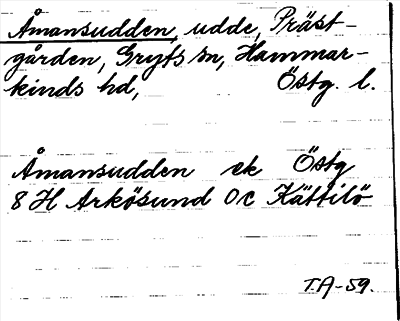 Åmansudden, udde, Präst-
gården, Gryts sn, Hammar-
kinds hd, Östg. l.
Åmansudden ek Östg
8 H Arkösund 0c Kättilö
T.A-59.